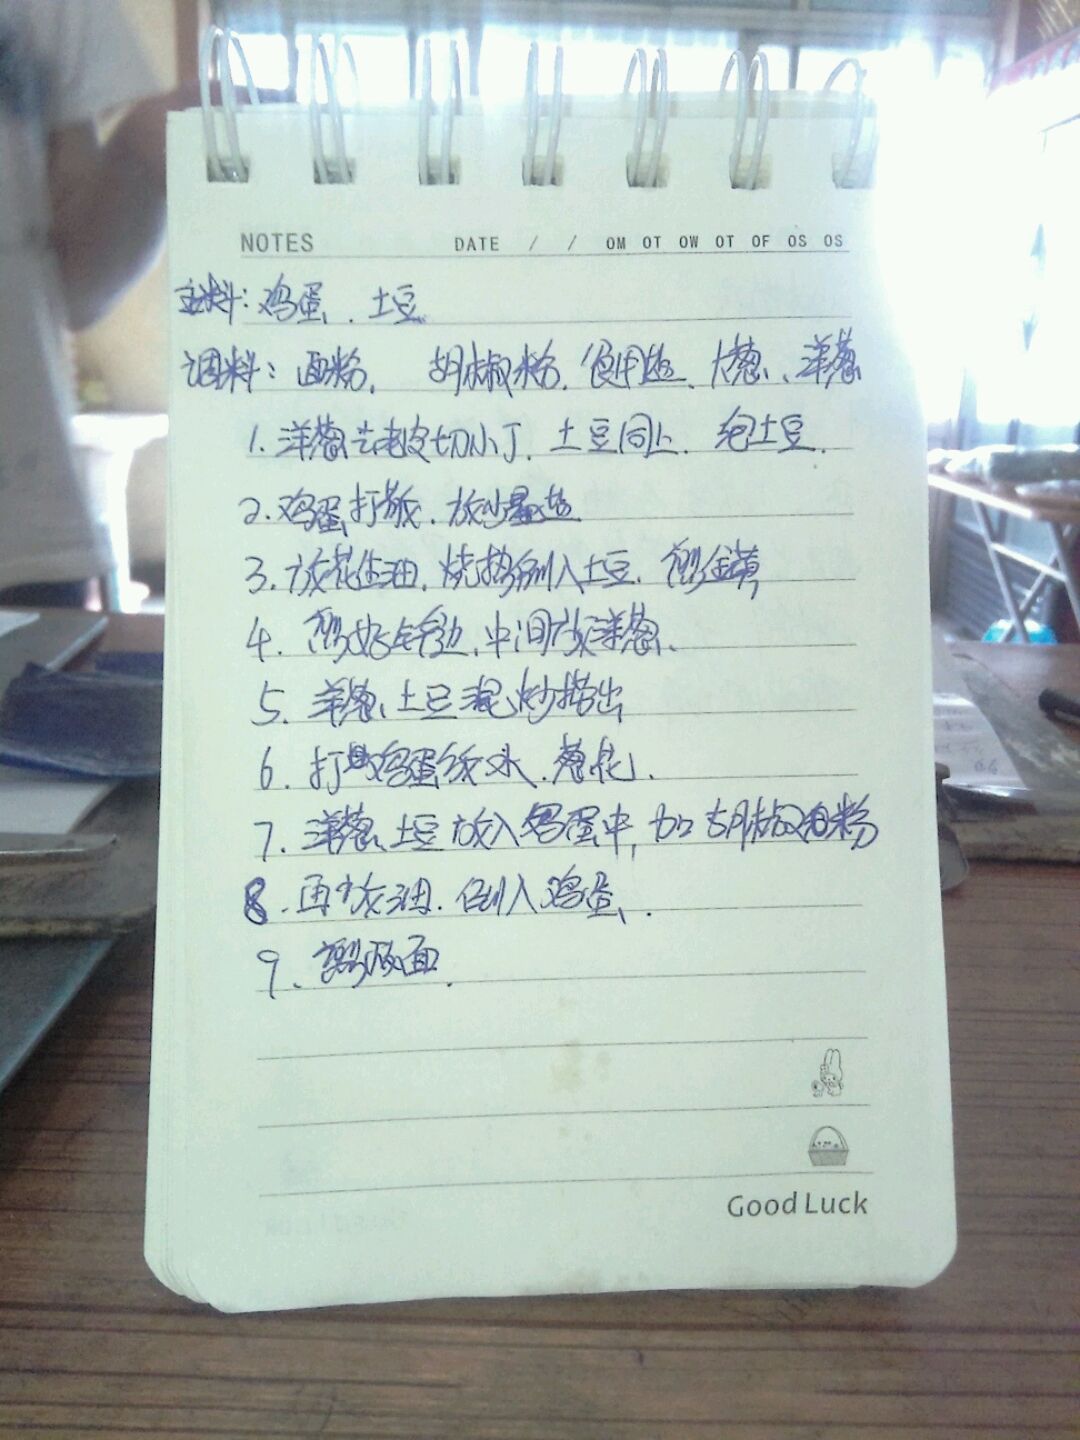 NOTES DATE / / OM OT OW OT OF OS OS
主料：鸡蛋、土豆
调料：面粉、胡椒粉、食用盐、大葱、洋葱
1. 洋葱去老皮切小丁、土豆同上、绝土豆
2. 鸡蛋打散、放少量盐
3. 放花生油、烧热倒入土豆、煎金黄
4. 煎好锅边、中间放洋葱、
5. 洋葱、土豆混炒捞出
6. 打鸡蛋放水、葱花、
7. 洋葱、土豆放入鸡蛋中，加胡椒面粉
8. 再少放油、倒入鸡蛋、
9. 煎两面、
Good Luck